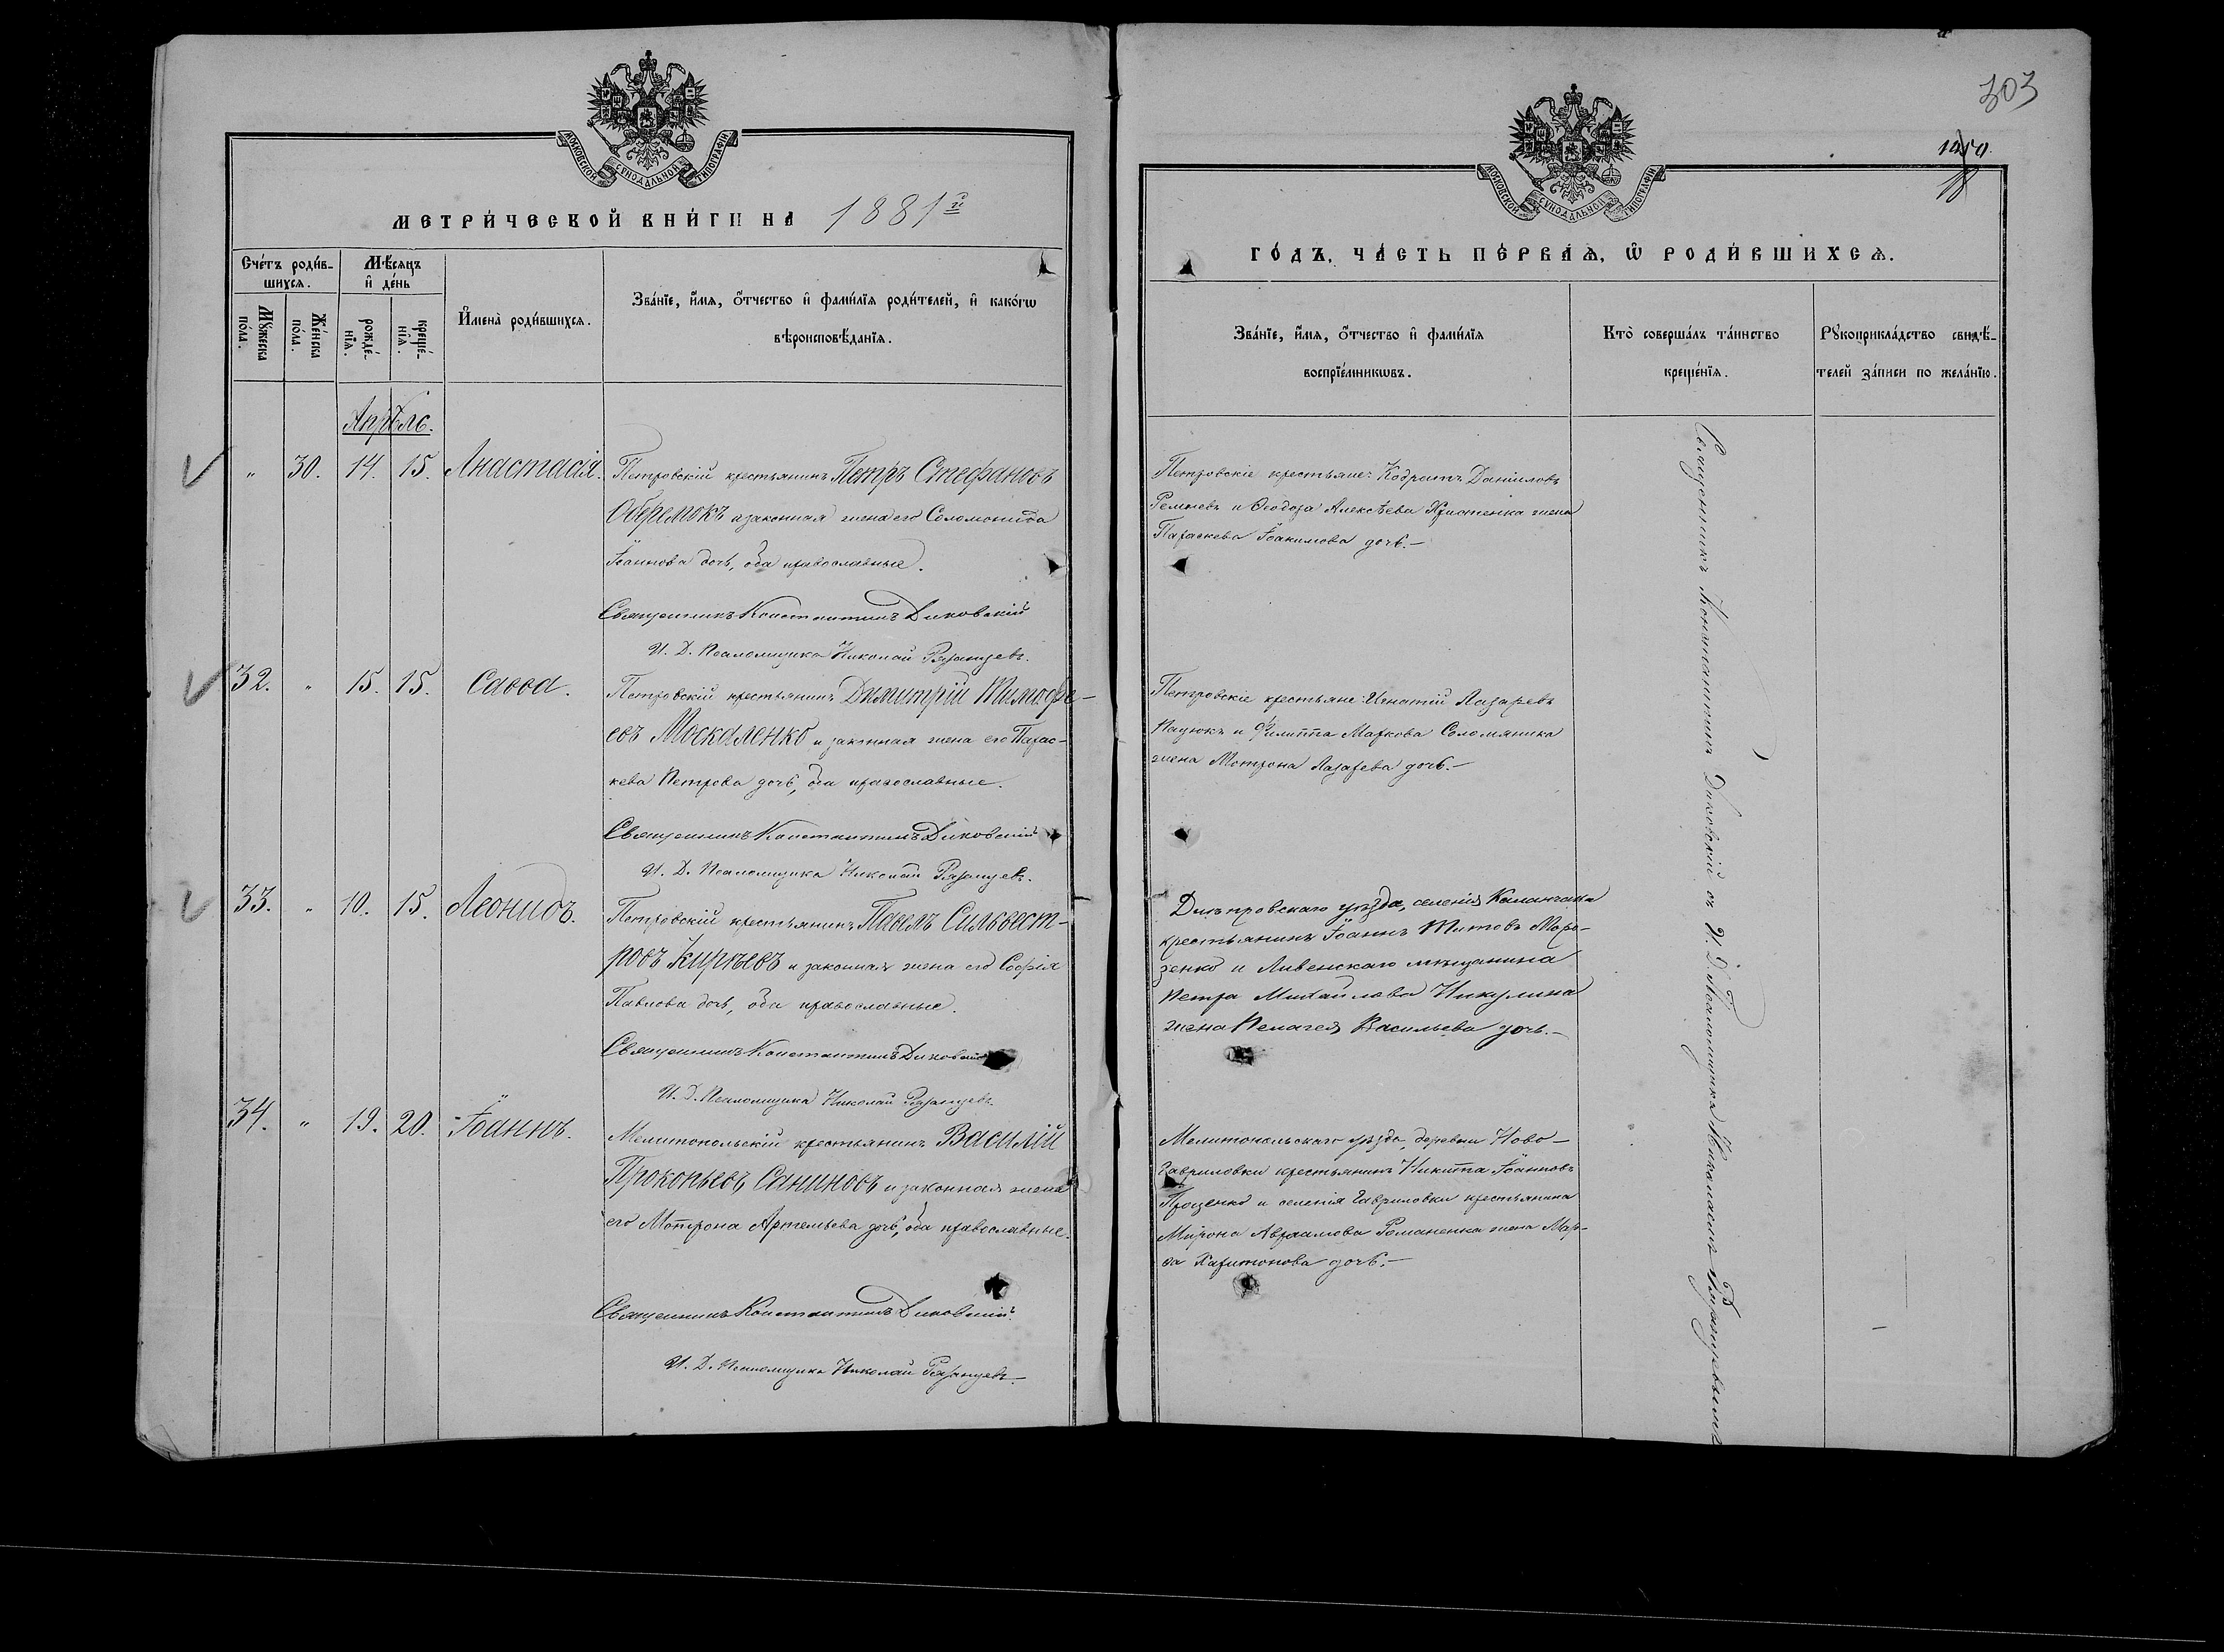 МОСКОВСКОЙ СѴНОДАЛЬНОЙ ТИПОГРАФІИ
МЕТРИ́ЧЕСКОЙ КНИ́ГИ НА 1881 й
Сче́тъ роди́в-
шихсѧ.
Мѣ́сѧцъ
и҆ де́нь
Мꙋ́жеска по́ла.
Же́нска по́ла.
рожде́-
нїѧ.
креще́-
нїѧ.
И҆мена̀ роди́вшихсѧ.
Зва́нїе, и҆́мѧ, ѻ҆́тчество и҆ фами́лїѧ роди́телей, и҆ како́гѡ
вѣроисповѣ́данїѧ.
Апрѣль.
" 30. 14. 15. Анастасія.
Петровскій крестьянинъ Петръ Стефановъ
Оберемокъ и законная жена его Соломонида
Іоаннова дочь, оба православные.
Священникъ Константинъ Диковскій
И. Д. Псаломщика Николай Рязанцевъ.
32. " 15. 15. Савва.
Петровскій крестьянинъ Димитрій Тимофе-
евъ Москаленко и законная жена его Парас-
кева Петрова дочь, оба православные.
Священникъ Константинъ Диковскій
И. Д. Псаломщика Николай Рязанцевъ.
33. " 10. 15. Леонидъ.
Петровскій крестьянинъ Павелъ Сильвест-
ровъ Кирѣевъ и законная жена его Софія
Павлова дочь, оба православные.
Священникъ Константинъ Диковскій
И. Д. Псаломщика Николай Рязанцевъ.
34. " 19. 20. Іоаннъ.
Мелитопольскій крестьянинъ Василій
Прокопьевъ Саниновъ и законная жена
его Мотрона Артемьева дочь, оба православные.
Священникъ Константинъ Диковскій
И. Д. Псаломщика Николай Рязанцевъ.
303
МОСКОВСКОЙ СѴНОДАЛЬНОЙ ТИПОГРАФІИ
ГО́ДЪ, ЧА́СТЬ ПЕ́РВАѦ, Ѡ҆ РОДИ́ВШИХСѦ.
Зва́нїе, и҆́мѧ, ѻ҆́тчество и҆ фами́лїѧ
воспрїе́мникѡвъ.
Кто̀ соверша́лъ та́инство
креще́нїѧ.
Рꙋкоприкла́дство свидѣ́-
телей за́писи по жела́нїю.
Петровскіе крестьяне: Кодратъ Даніиловъ
и Ѳеодора Алексѣева Христенка жена
Параскева Іоакимова дочь.—
Петровскіе крестьяне: Игнатій Лазаревъ
Пацюкъ и Филиппа Маркова Соломяника
жена Мотрона Лазарева дочь.—
Днѣпровскаго уѣзда, селенія Каланчака
крестьянинъ Іоаннъ Титовъ Моро-
зенко и Ливенскаго мѣщанина
Петра Михайлова Никулина
жена Пелагея Васильева дочь.—
Мелитопольскаго уѣзда, деревни Ново-
Гавриловки крестьянинъ Никита Іоанновъ
Проценко и селенія Гавриловки крестьянина
Мирона Авраамова Романенка жена Мар-
ѳа Харитонова дочь.—
Священникъ Константинъ Диковскій съ И. Д. Псаломщика Николаемъ Рязанцевымъ